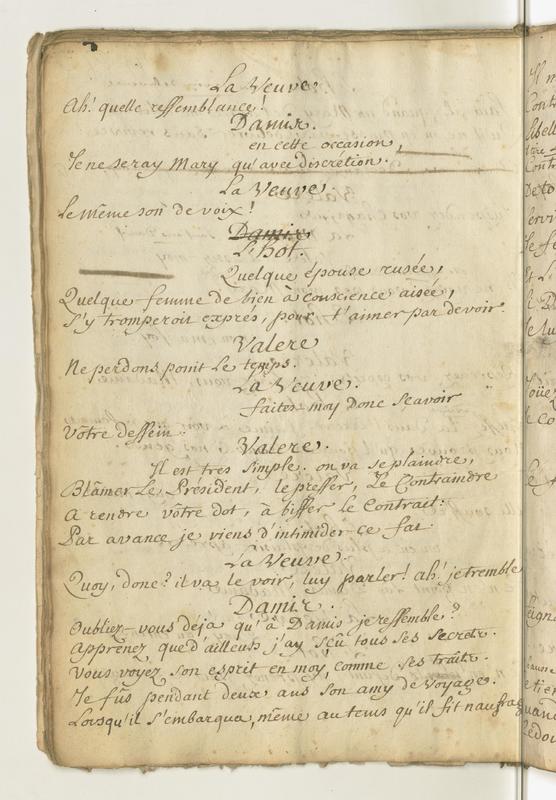 La Veuve.
Ah! quelle ressemblance!
Damis.
en cette occasion,
Je ne seray Mary qu'avec discretion.
La Veuve
Le même son de voix!
Damis
L'hot.
Quelque épouse rusée,
Quelque femme de bien à conscience aisée,
S'y tromperoit exprés, pour t'aimer par devoir.
Valere
Ne perdons point Le temps.
La Veuve.
faites moy donc Scavoir
Vôtre dessein.
Valere.
Il est tres simple. on va se plaindre,
Blâmer Le Président, le presser, Le Contraindre
A rendre vôtre dot, à biffer le Contrait:
Par avance je viens d'intimider ce fat.
La Veuve.
Quoy, donc? il va le voir, luy parler! ah! je tremble
Damis.
Oubliez-vous déja qu'à Damis je ressemble?
Apprenez que d'ailleurs j'ay sçu tous ses secrets.
Vous voyez son esprit en moy, comme ses traits.
Je fûs pendant deux ans son amy de voyage.
Lorsqu'il s'embarqua, même au tems qu'il fit naufrag